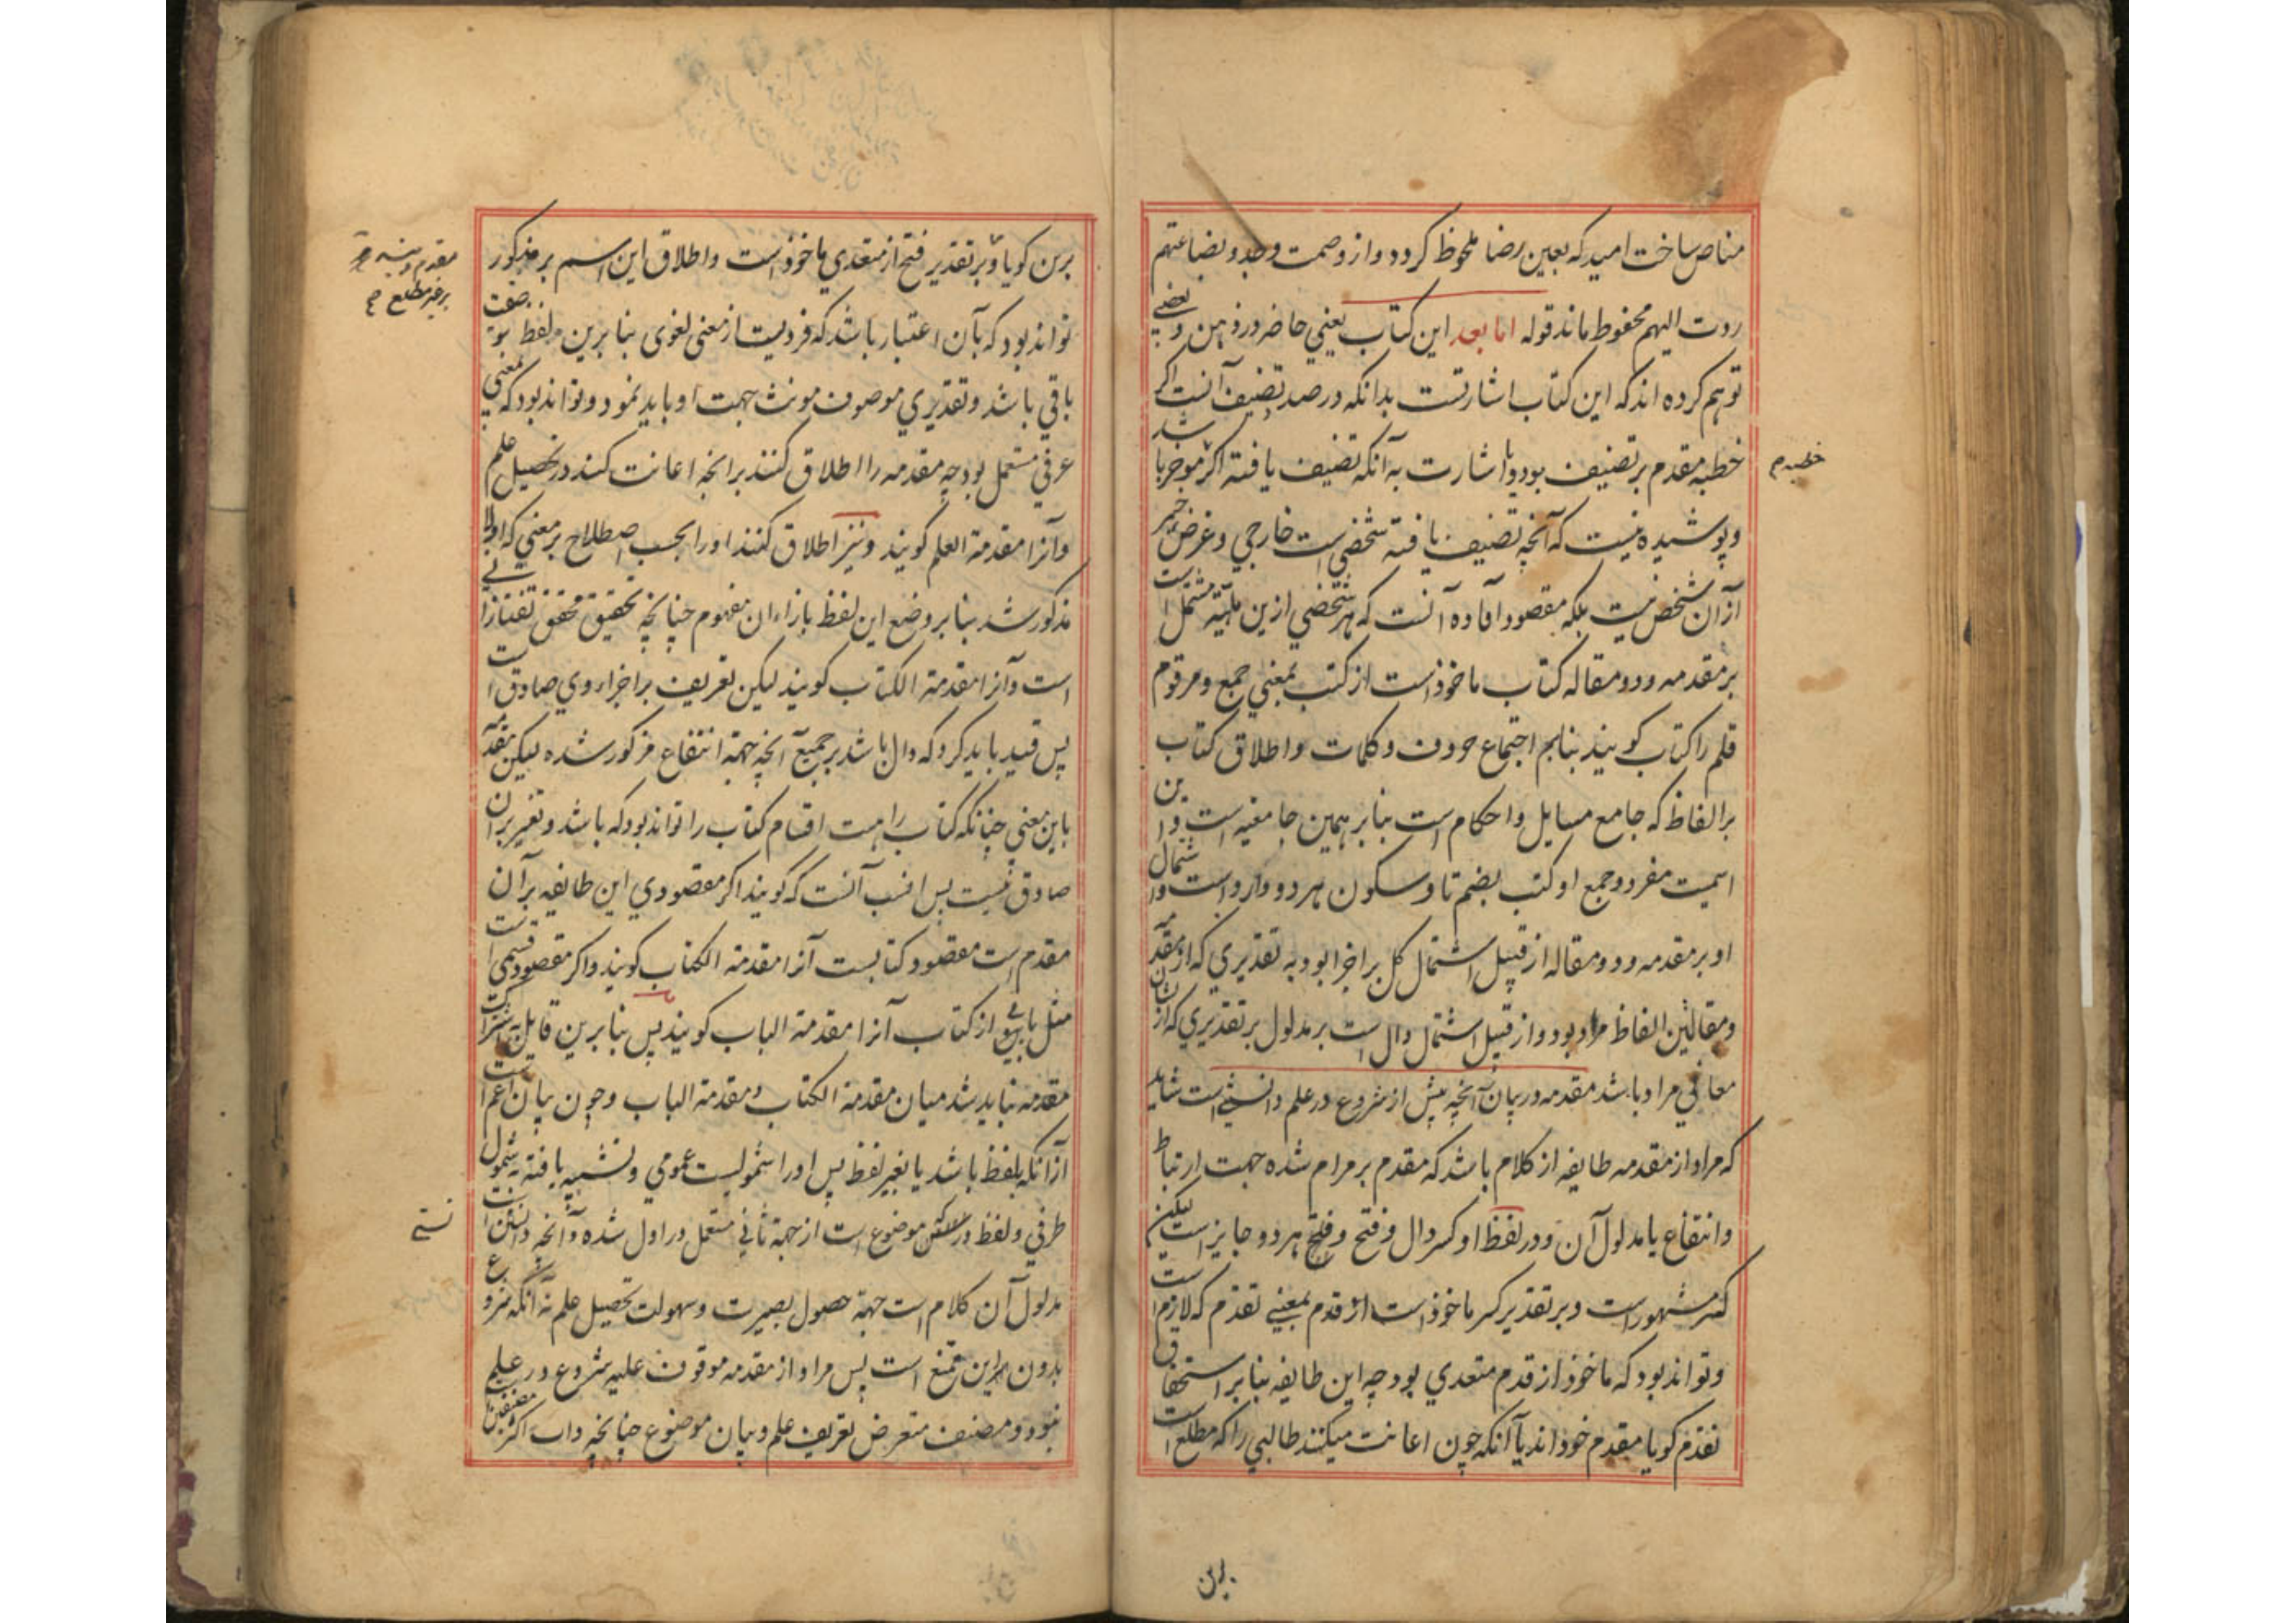 مناص ساخت امید که بعین رضا ملحوظ کردد و از وصمت وجد و بضاعتهم
ردت الیهم محفوظ ماند قوله اما بعد این کتاب یعنی حاضر در ذهن و بعضی
توهم کرده اند که این کتاب اشارتست بدانکه در صدد تصنیف آنست اکر
خطبه مقدم بر تصنیف بود و یا اشارت به آنکه تصنیف یافته اکر موخر باشد
خطبه م
و پوشیده نیست که آنچه تصنیف یافته شخصی است خارجی و غرض
از آن شخص نیست بلکه مقصود افاده آنست که هر شخصی ازین هیئة مشتمل است
بر مقدمه و دو مقاله کتاب ماخوذ است از کتب بمعنی جمع و مرقوم
قلم را کتاب کویند بنابر اجتماع حروف و کلمات و اطلاق کتاب
بر الفاظ که جامع مسایل و احکام است بنابر همین جامعیه است و این
اسمیت مفرد و جمع او کتب بضم تا و سکون هر دو وارد است و اشتمال
او بر مقدمه و دو مقاله از قبیل اشتمال کل بر اجزا بود به تقدیری که از مقدمه
و مقالتین الفاظ مراد بود و از قبیل اشتمال دال است بر مدلول بر تقدیری که از آن
معانی مراد باشد مقدمه در بیان آنچه پیش از شروع در علم دانستنی است شاید
که مراد از مقدمه طایفه از کلام باشد که مقدم بر مرام شده جهت ارتباط
و انتفاع یا مدلول آن و در لفظ او کسر دال و فتح هر دو جایز است لیکن
کسر مشهور است و بر تقدیر کسر ماخوذ است از قدم بمعنی تقدم که لازم است
و تواند بود که ماخوذ از قدم متعدی بود چه این طایفه بنابر استحقاق
تقدم کویا مقدم خود اند یا آنکه چون اعانت میکند طالبی را که مطلع است
برین
برین کویا و بر تقدیر فتح از متعدی ماخوذ است و اطلاق این اسم بر مذکور
تواند بود که بآن اعتبار باشد که فردیست از معنی لغوی بنابرین لفظ بوصفیت
باقی باشد و تقدیری موصوف مونث جهت او باید نمود و تواند بود که بمعنی
عرفی مستعمل بود چه مقدمه را اطلاق کنند بر آنچه اعانت کند در تحصیل علم
و آنرا مقدمة العلم کویند و نیز اطلاق کنند او را بحسب اصطلاح بر معنی که اولا
مذکور شد بنابر وضع این لفظ بازاء ان مفهوم چنانچه تحقیق محقق تفتازانی
است و آنرا مقدمة الکتاب کویند لیکن تعریف بر اجزاء وی صادق است
پس قید باید کرد که دال باشد بر جمیع آنچه جهة انتفاع مذکور شده لیکن مقدمه
باین معنی چنانکه کتاب را هست اقسام کتاب را تواند بود که باشد و تعبیر بر ان
صادق نیست پس انسب آنست که کویند اکر مقصودی این طایفه بر آن
مقدم است مقصود کتابست آنرا مقدمة الکتاب کویند و اکر مقصود قسمی است
مثل بابی از کتاب آنرا مقدمة الباب کویند پس بنابرین قایل باشتراک
مقدمه نباید شد میان مقدمة الکتاب و مقدمة الباب و چون بیان اعم است
از آنکه بلفظ باشد یا بغیر لفظ پس او را شمولیست عمومی و تشبیه یافته به شمول
ظرفی و لفظ در موضوع است از جهة ثانی مستعمل در اول شده و آنچه
مدلول آن کلام است جهة حصول بصیرت و سهولت تحصیل علم نه آنکه شروع
بدون این ممتنع است پس مراد از مقدمه موقوف علیه شروع در علم
نبود و مصنف متعرض تعریف علم و بیان موضوع چنانچه داب اکثر مصنفین